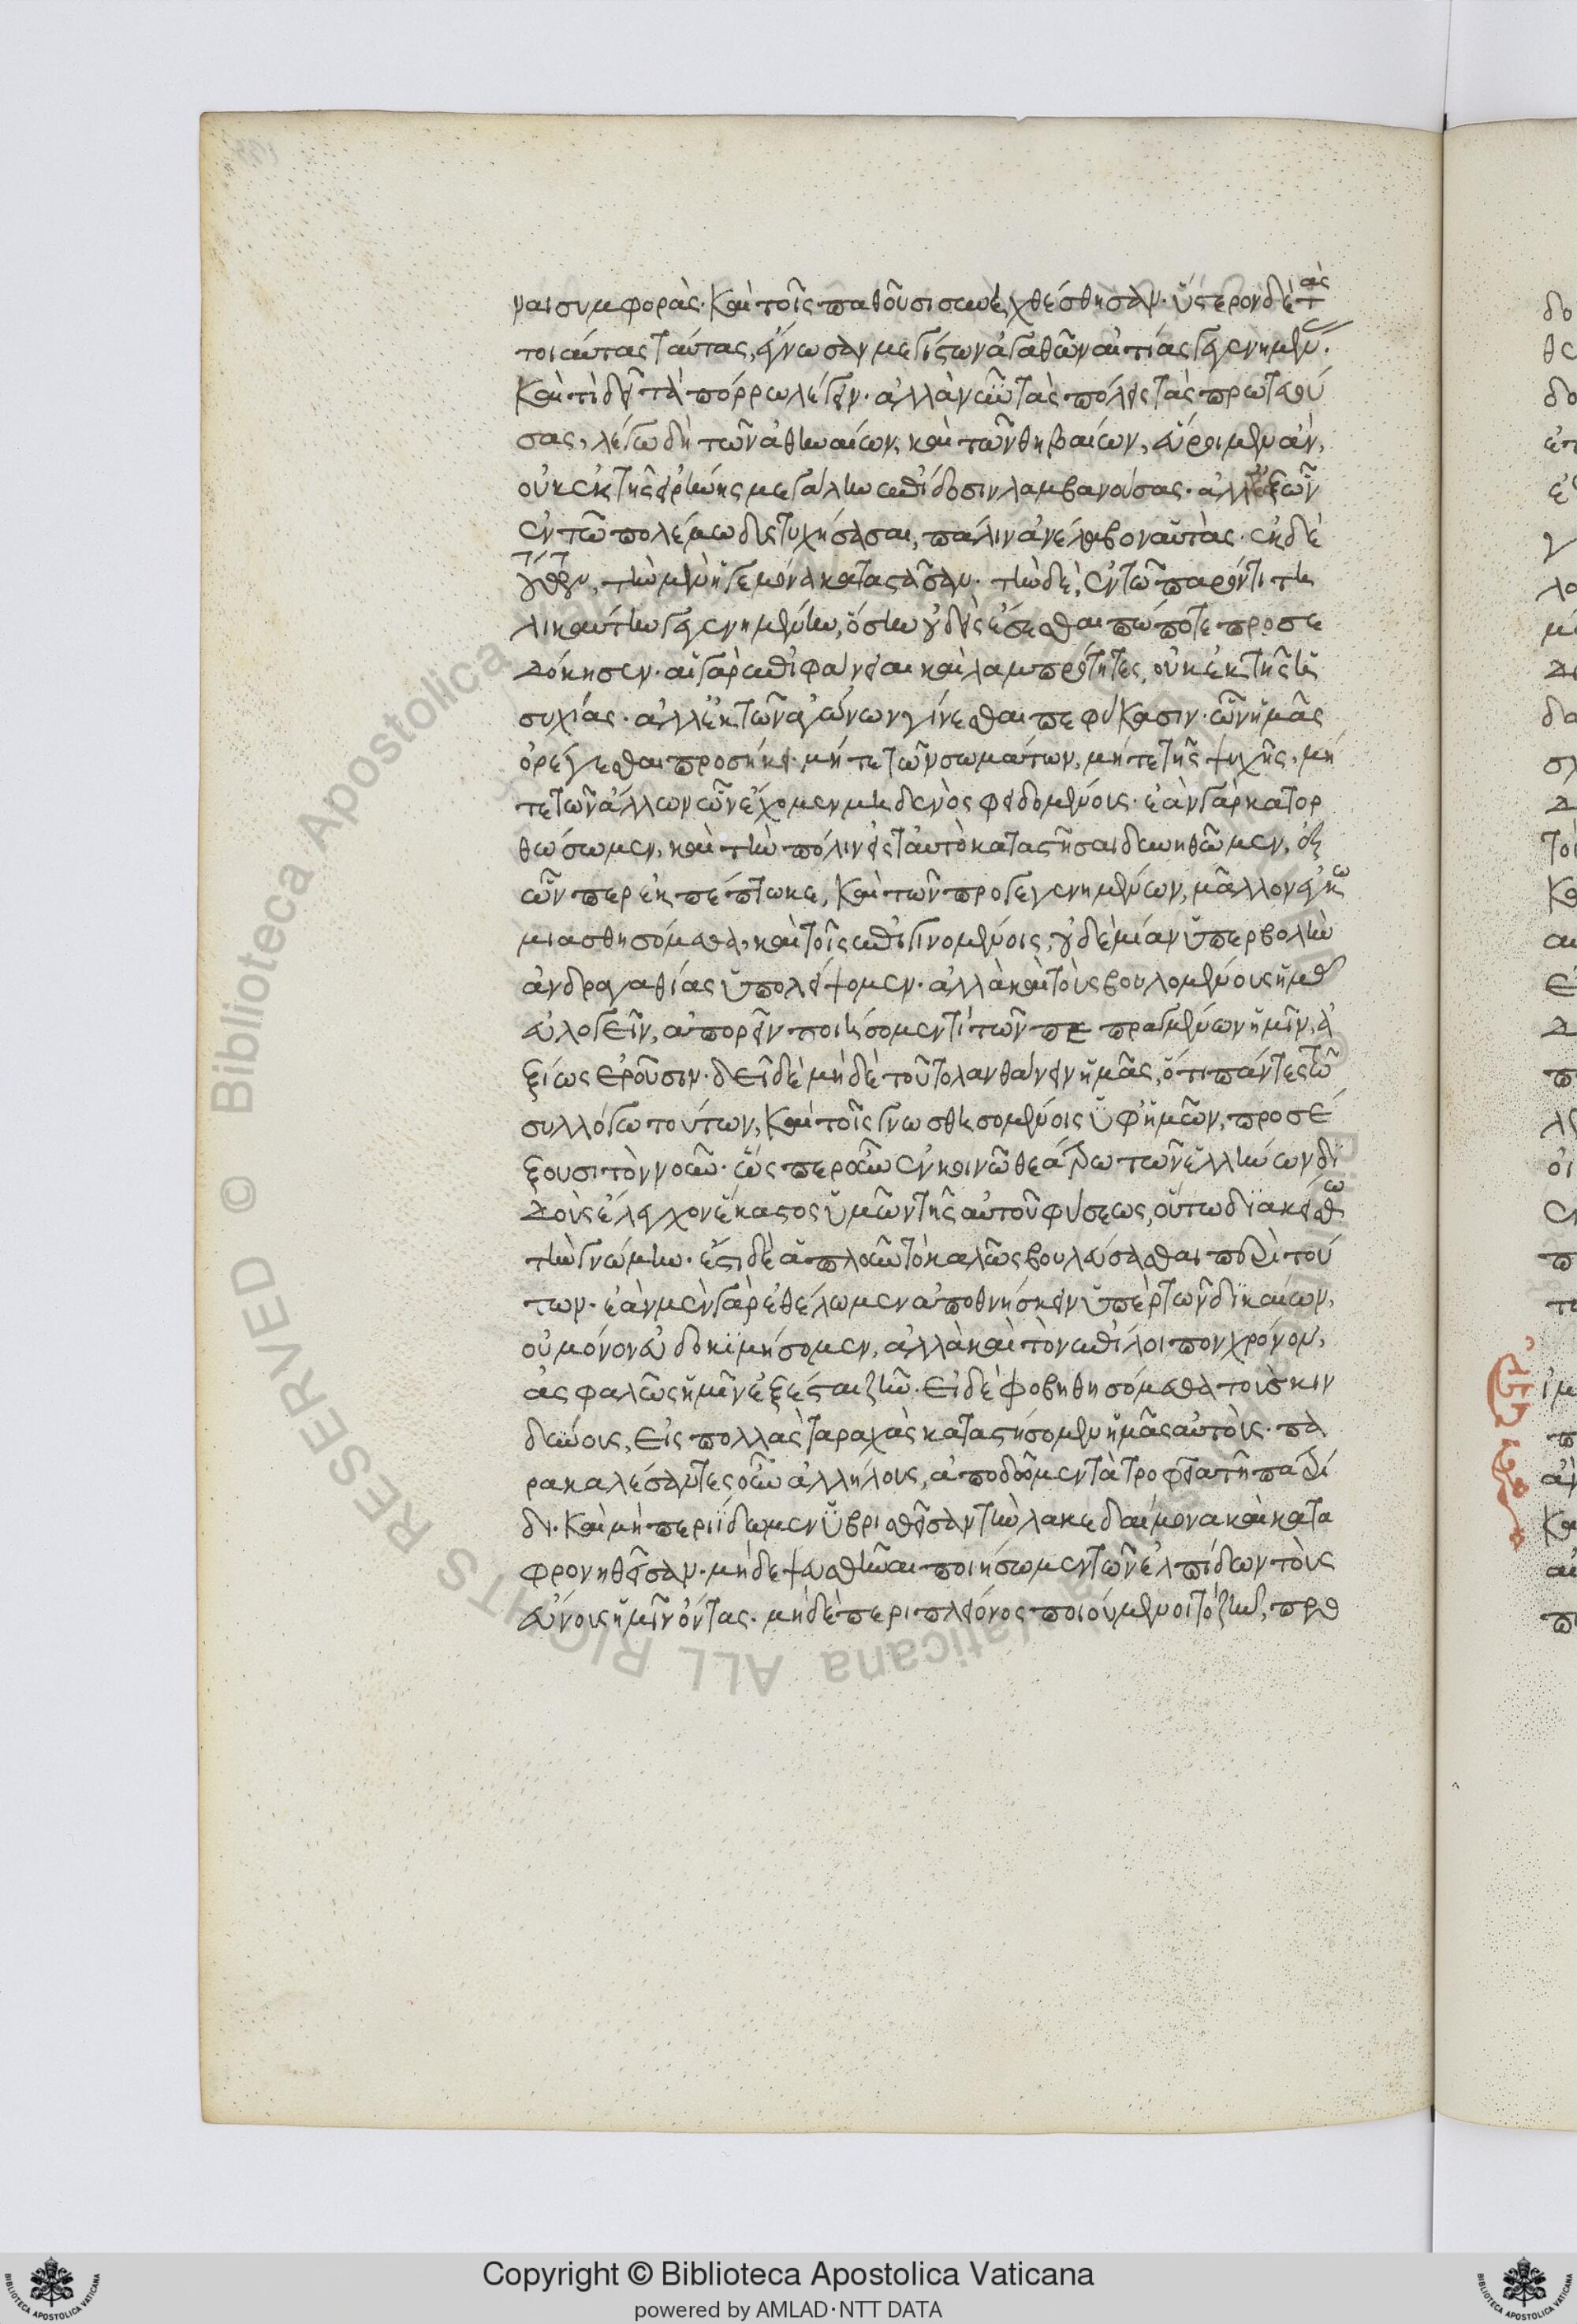 ναι συμφοράς· καὶ τοῖς παθοῦσι συνηχθέσθησαν· ὕστερον δὲ τὰς
τοιαύτας ταύτας, ἔγνωσαν μεγίστων ἀγαθῶν αἰτίας γεγενημέν.
καὶ τί δεῖ τὰ πόρρω λέγειν· ἀλλὰ νῦν τὰς πόλεις τὰς πρωτευού
σας, λέγω δὴ τῶν ἀθηναίων, καὶ τῶν θηβαίων, εὕροιμεν ἂν,
οὐκ ἐκ τῆς εἰρήνης μεγάλην ἐπίδοσιν λαμβανούσας· ἀλλ' ἐξ ὧν
ἐν τῷ πολέμω δυστυχήσασαι, πάλιν ἀνέλαβον αὑτάς· ἐκ δὲ
τούτων, τὴν μὲν ἡγεμόνα καταστᾶσαν· τὴν δὲ, ἐν τῶ παρόντι τη
λικαύτην γεγενημένην, ὅσην οὐδεὶς ἔσεσθαι πώποτε προσε
δόκησεν· αἱ γὰρ ἐπιφάνειαι καὶ λαμπρότητες, οὐκ ἐκ τῆς ἡ
συχίας· ἀλλ' ἐκ τῶν ἀγώνων γίνεσθαι πεφύκασιν· ὧν ἡμᾶς
ὀρέγεσθαι προσήκει· μήτε τῶν σωμάτων, μήτε τῆς ψυχῆς, μή
τε τῶν ἄλλων ὧν ἔχομεν μηδενὸς φειδομένοις· ἐὰν γὰρ κατορ
θώσωμεν, καὶ τὴν πόλιν εἰς ταυτὸ καταστῆσαι δυνηθῶμεν, ἐξ
ὧν περ ἐκπέπτωκε, καὶ τῶν προγεγενημένων, μᾶλλον
μιασθησόμεθα, καὶ τοῖς ἐπιγινομένοις, οὐδεμίαν ὑπερβολὴν
ἀνδραγαθίας ὑπολείψομεν· ἀλλὰ καὶ τοὺς βουλομένους ἡμᾶς
εὐλογεῖν, ἀπορεῖν ποιήσομεν τί τῶν πεπραγμένων ἡμῖν, ἀ
ξίως ἐροῦσιν· δεῖ δὲ μηδὲ τοῦτο λανθάνειν ἡμᾶς, ὅτι πάντες τῶ
συλλόγω τούτων, καὶ τοῖς γνωσθησομένοις ὑφ' ἡμῶν, προσέ
ξουσι τὸν νοῦν· ὥσπερ οὖν ἐν κοινῶ θεάτρω τῶν ἑλλήνων δι
δοὺς ἔλεγχον ἕκαστος ὑμῶν τῆς αὑτοῦ φύσεως, οὕτω διακείσθω
τὴν γνώμην· ἔστι δὲ ἁπλοῦν τὸ καλῶς βουλεύσασθαι περὶ τού
των· ἐὰν μὲν γὰρ ἐθέλωμεν ἀποθνήσκειν ὑπὲρ τῶν δικαίων,
οὐ μόνον εὐδοκιμήσομεν, ἀλλὰ καὶ τὸν ἐπίλοιπον χρόνον,
ἀσφαλῶς ἡμῖν ἐξέσται ζῆν· εἰ δὲ φοβηθησόμεθα τοὺς κιν
δύνους, εἰς πολλὰς ταραχὰς καταστήσομεν ἡμᾶς αὐτούς· πα
ρακαλέσαντες οὖν ἀλλήλους, ἀποδῶμεν τὰ τροφεῖα τῆ πατρί
δι· καὶ μὴ περιίδωμεν ὑβρισθεῖσαν τὴν λακεδαίμονα καὶ κατα
φρονηθεῖσαν· μηδὲ ψευσθῆναι ποιήσωμεν τῶν ἐλπίδων τοὺς
εὔνους ἡμῖν ὄντας· μηδὲ περὶ πλείονος ποιούμενοι τὸ ζῆν,
Copyright © Biblioteca Apostolica Vaticana
powered by AMLAD·NTT DATA